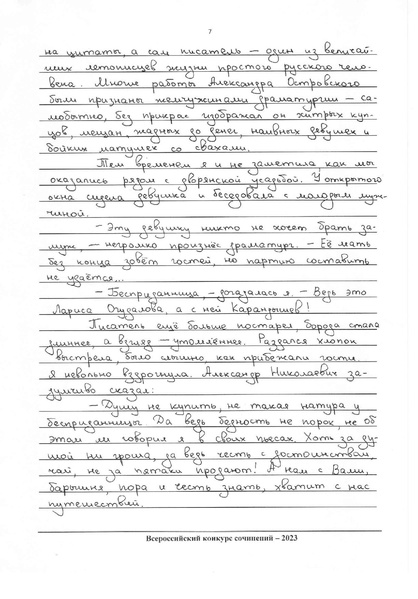 7
на цитаты, а сам писатель – один из величай-
ших летописцев жизни простого русского чело-
века. Многие работы Александра Островского
были признаны жемчужинами драматургии – са-
мобытно, без прикрас изображал он хитрых куп-
цов, мещан, жадных до денег, наивных девушек и
бойких матушек со свахами.
Тем временем я и не заметила как мы
оказались рядом с дворянской усадьбой. У открытого
окна сидела девушка и беседовала с молодым муж-
чиной.
– Эту девушку никто не хочет брать за-
муж, – негромко произнёс драматург. – Её мать
без конца зовёт гостей, но партию составить
не удаётся...
– Бесприданница, – догадалась я. – Ведь это
Лариса Огудалова, а с ней Карандышев!
Писатель ещё больше постарел, борода стала
длиннее, а взгляд – утомлённее. Раздался хлопок
выстрела, было слышно, как прибежали гости.
Я невольно вздрогнула. Александр Николаевич за-
думчиво сказал:
– Душу не купить, не такая натура у
бесприданницы. Да ведь бедность не порок, не об
этом ли говорил я в своих пьесах. Хоть за ду-
шой ни гроша, да ведь честь с достоинством,
чай, не за пятаки продают! А нам с Вами,
барышня, пора и честь знать, хватит с нас
путешествий.
Всероссийский конкурс сочинений – 2023